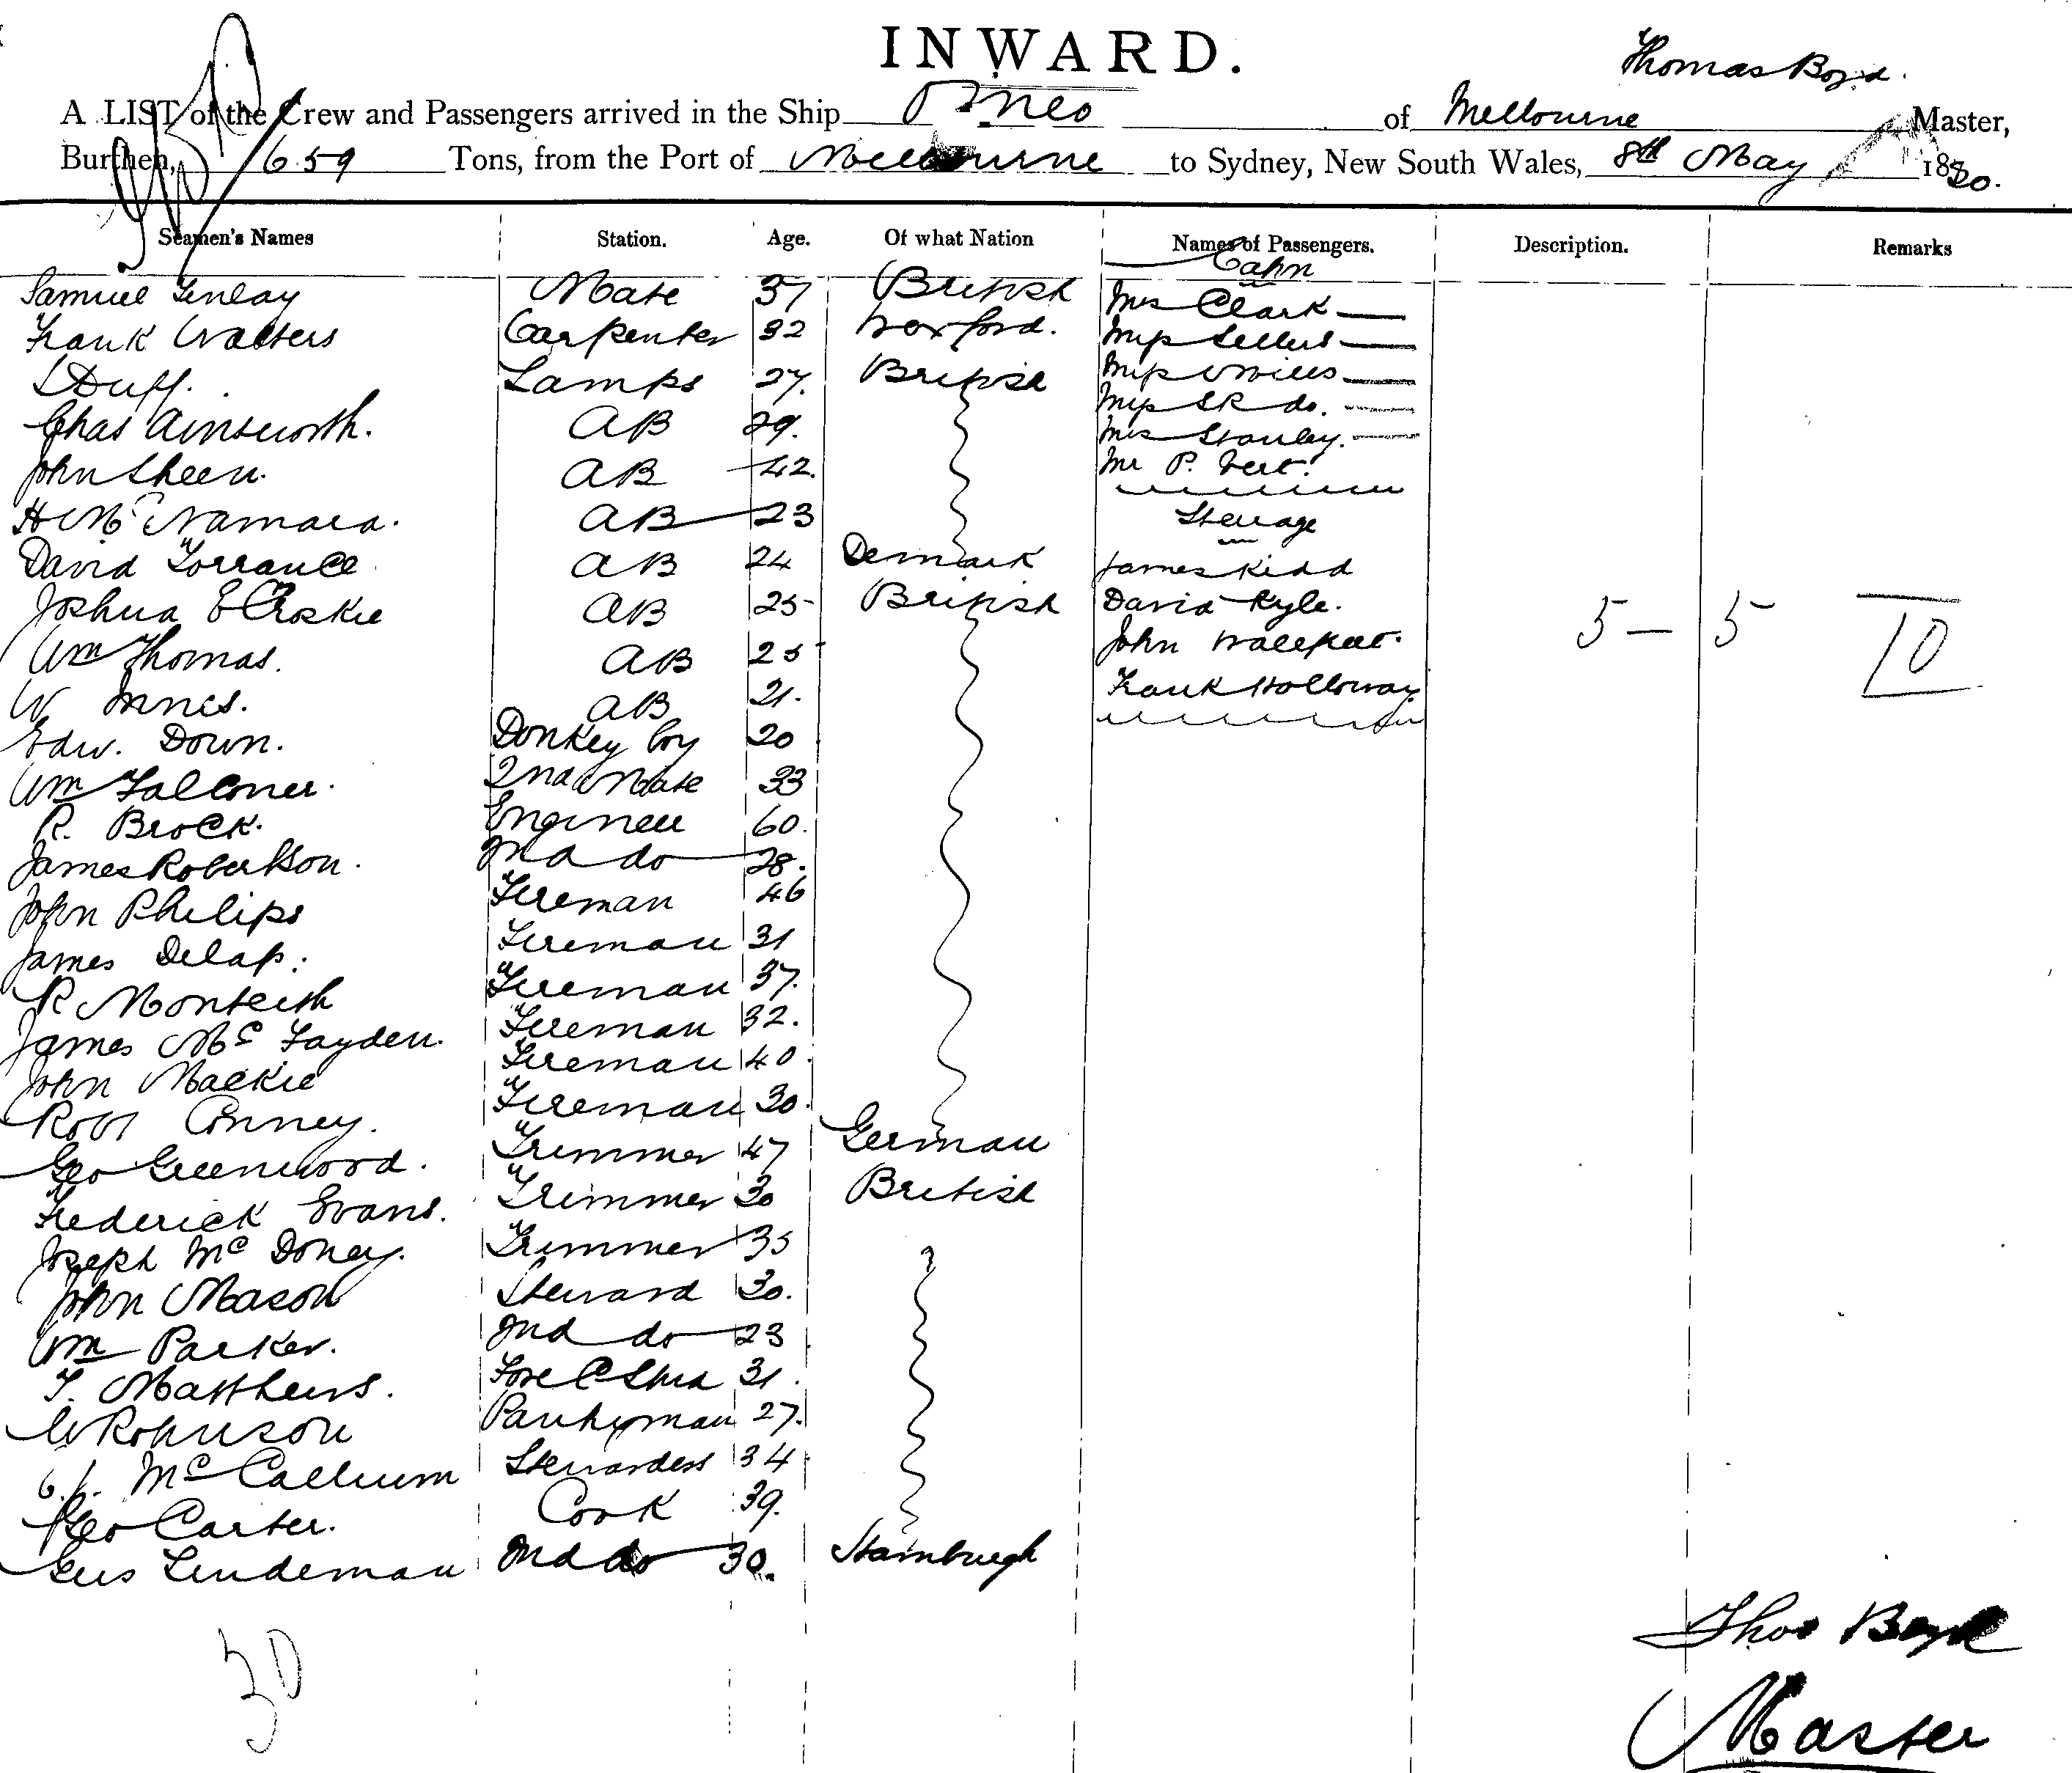 INWARD.
Thomas Boyd.
A LIST of the Crew and Passengers arrived in the Ship of Melbourne Master,
Burthen, 659 Tons, from the Port of Melbourne to Sydney, New South Wales, 8th May 18
Seamen's Names Station. Age. Of what Nation Names of Passengers. Description. Remarks
Samuel Mate 37 British Mrs Clark
Frank Walters Carpenter 32 Wexford. Miss Sellers
Duff. Lamps 27. British Miss
Chas Ainsworth. AB 29. Miss do.
John Sheen. AB 42. Mrs Stanley.
H Mc Namara. AB 23 Mr P.
Steerage
David Torrance AB 24 Denmark James Kidd
Joshua AB 25 British David Kyle.
Wm Thomas. AB 25 John
W Innes. AB 21. Frank Holloway
5 — 5 10
Edw. Down. Donkey boy 20
Wm Falconer. 2nd Mate 33
R. Brock. Engineer 60.
James Robertson. 2nd do 28.
John Philips Fireman 46
James Delap. Fireman 31
R Monteith Fireman 37.
James Mc Fayden. Fireman 32.
John Mackie Fireman 40.
Robt Conney. Fireman 30.
Geo Greenwood. Trimmer 47 German
Frederick Evans. Trimmer 30 British
Joseph Mc Doney. Trimmer 35
John Mason Steward 30.
Wm Parker. 2nd do 23
T. Matthews. Fore C Stwd 31.
W Robinson Pantryman 27.
Mc Callum Stewardess 34
Geo Carter. Cook 39.
Gus Lindeman 2nd do 30. Hamburgh
30
Thos Boyd
Master